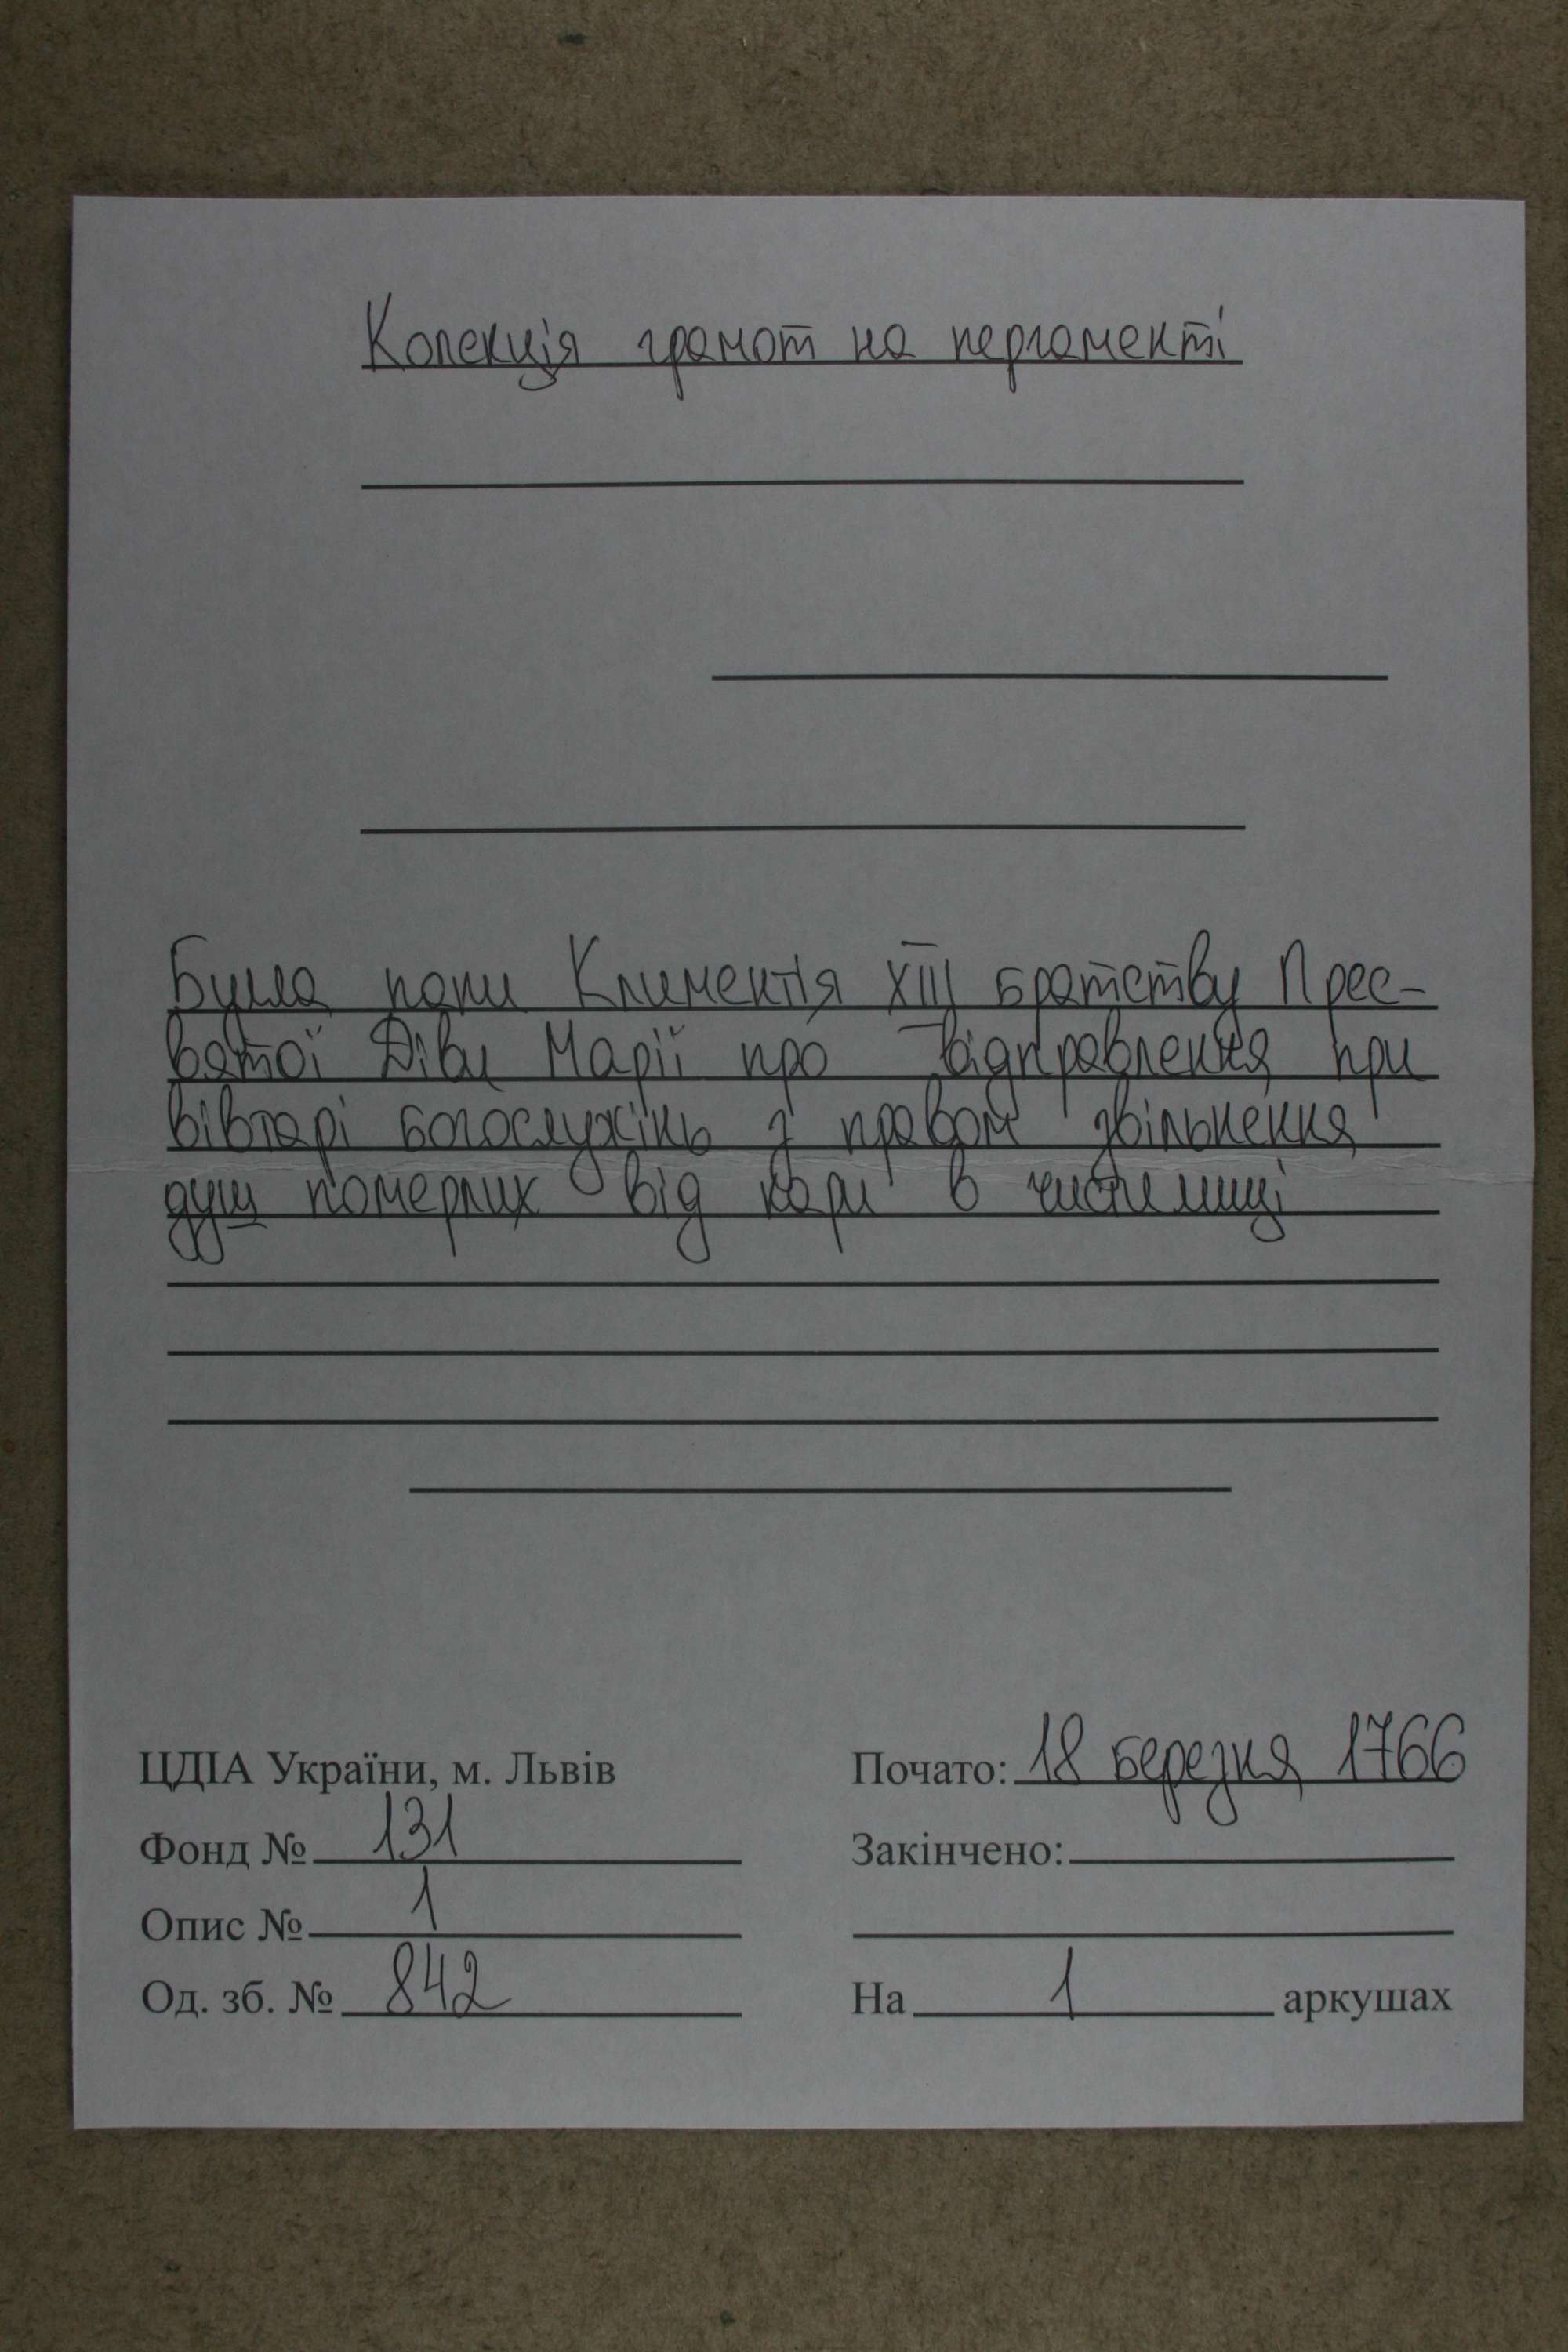 Колекція грамот на пергаменті
Булла папи Климентія XIII братству Прес-
вятої Діви Марії про відправлення при
вівтарі богослужінь з правом звільнення
душ померлих від кари в чистилищі
ЦДІА України, м. Львів
Фонд № 131
Опис № 1
Од. зб. № 842
Почато: 18 березня 1766
Закінчено:
На 1 аркушах